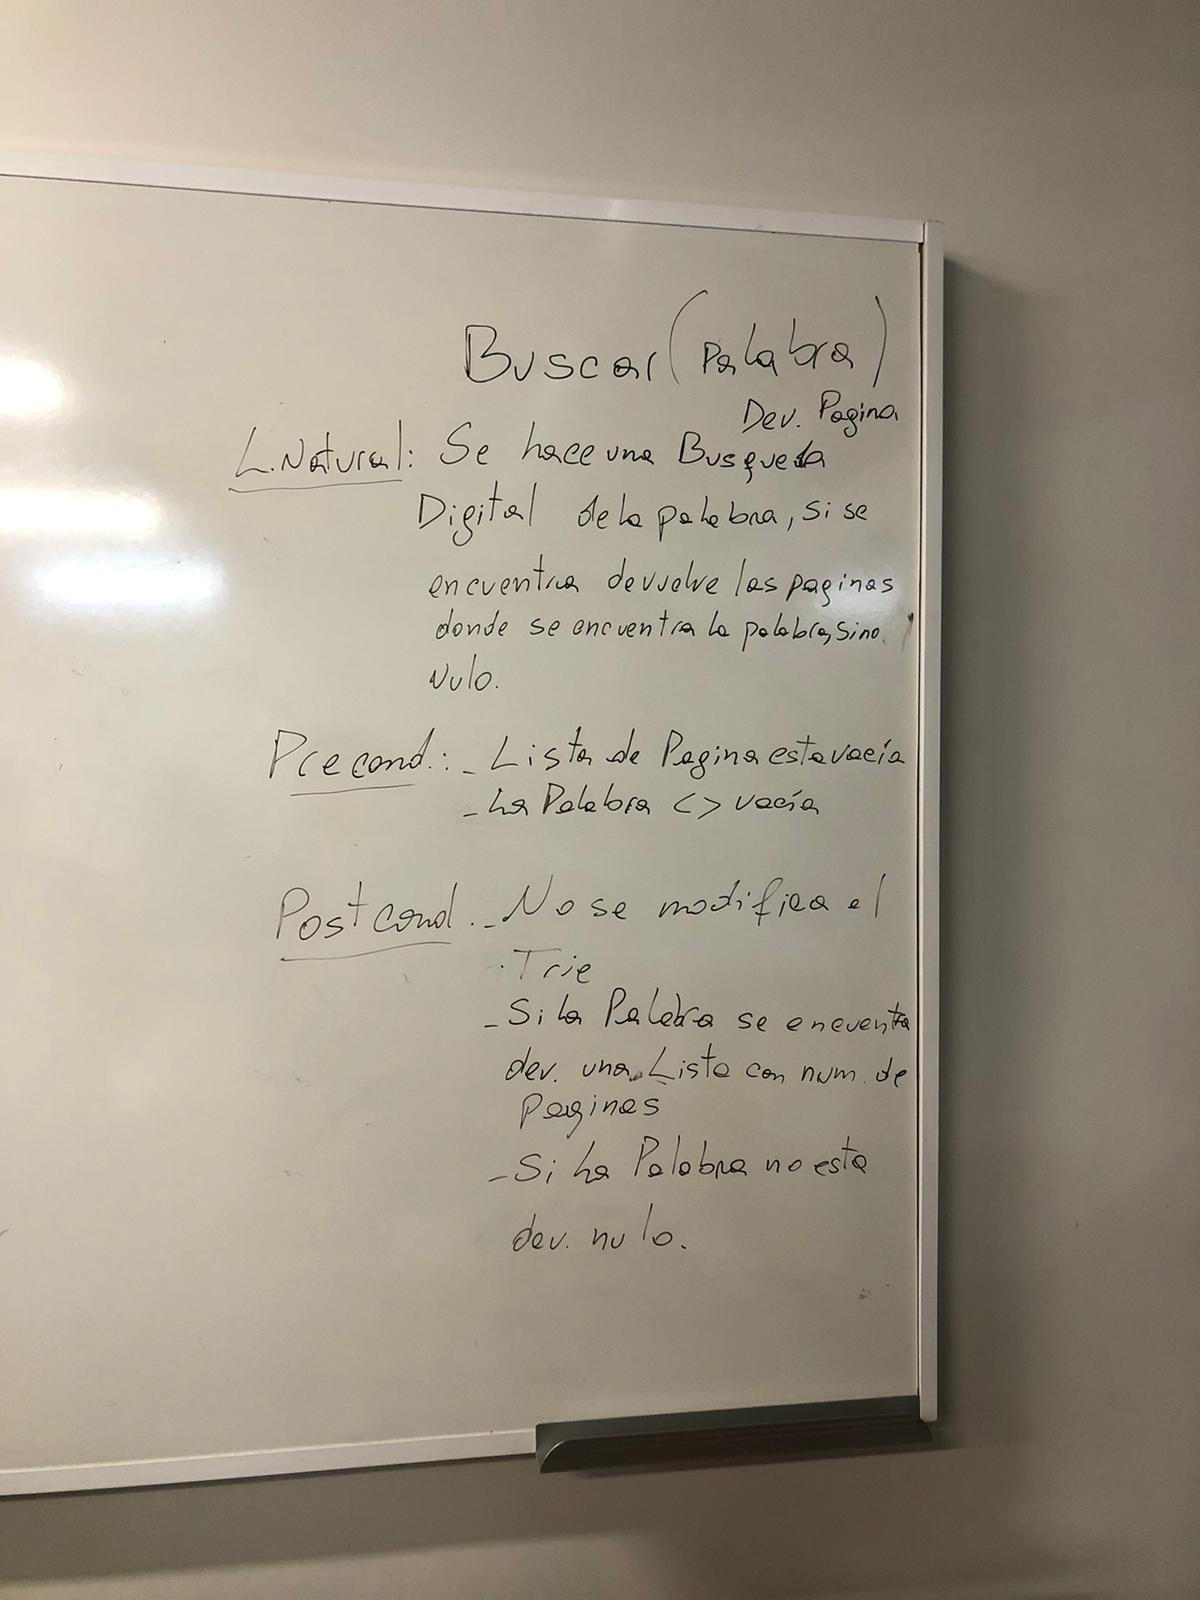 Buscar (Palabra)
Dev. Pagina
L. Natural: Se hace una Busqueda
Digital de la palabra, si se
encuentra devuelve las paginas
donde se encuentra la palabra, sino
Nulo.
Precond.: - Lista de Pagina esta vacía
- La Palabra <> vacía
Postcond. - No se modifica el
Trie
- Si la Palabra se encuentra
dev. una Lista con num. de
Paginas
- Si La Palabra no esta
dev. nulo.